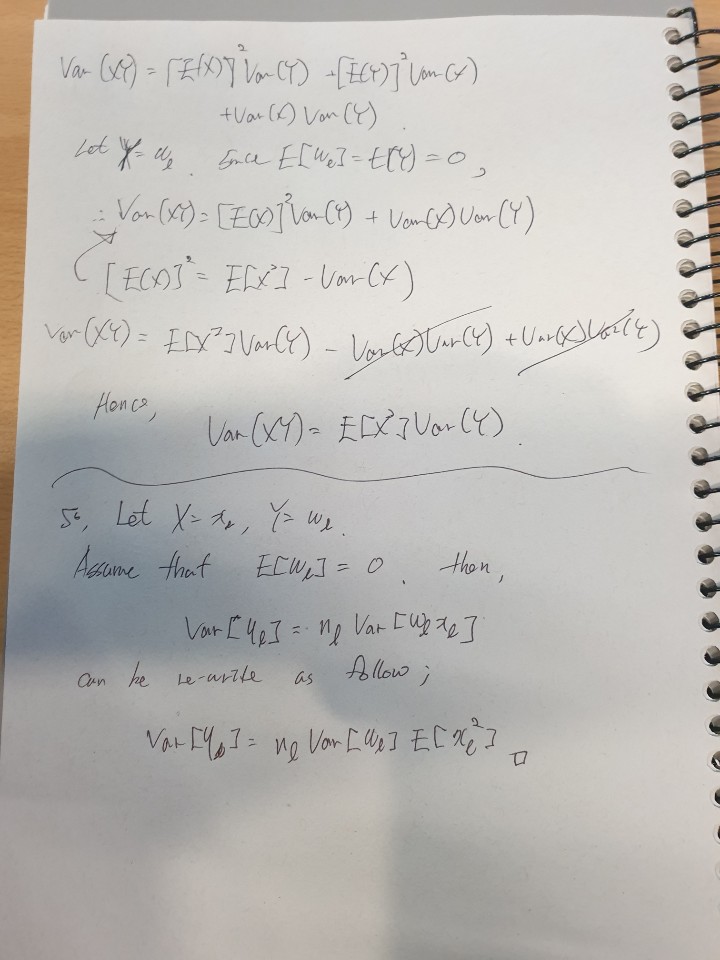 Var(XY) = [E(X)]²Var(Y) + [E(Y)]²Var(X)
+Var(X) Var(Y).
Let Y = w_l. Since E[w_l] = E(Y) = 0,
∴ Var(XY) = [E(X)]²Var(Y) + Var(X)Var(Y)
[E(X)]² = E[X²] - Var(X)
Var(XY) = E[X²]Var(Y) - Var(X)Var(Y) + Var(X)Var(Y)
Hence,
Var(XY) = E[X²]Var(Y).
So, Let X = x_l, Y = w_l.
Assume that E[w_l] = 0. then,
Var[y_l] = n_l Var[w_l x_l]
can be re-write as follow;
Var[y_l] = n_l Var[w_l] E[x_l²] □